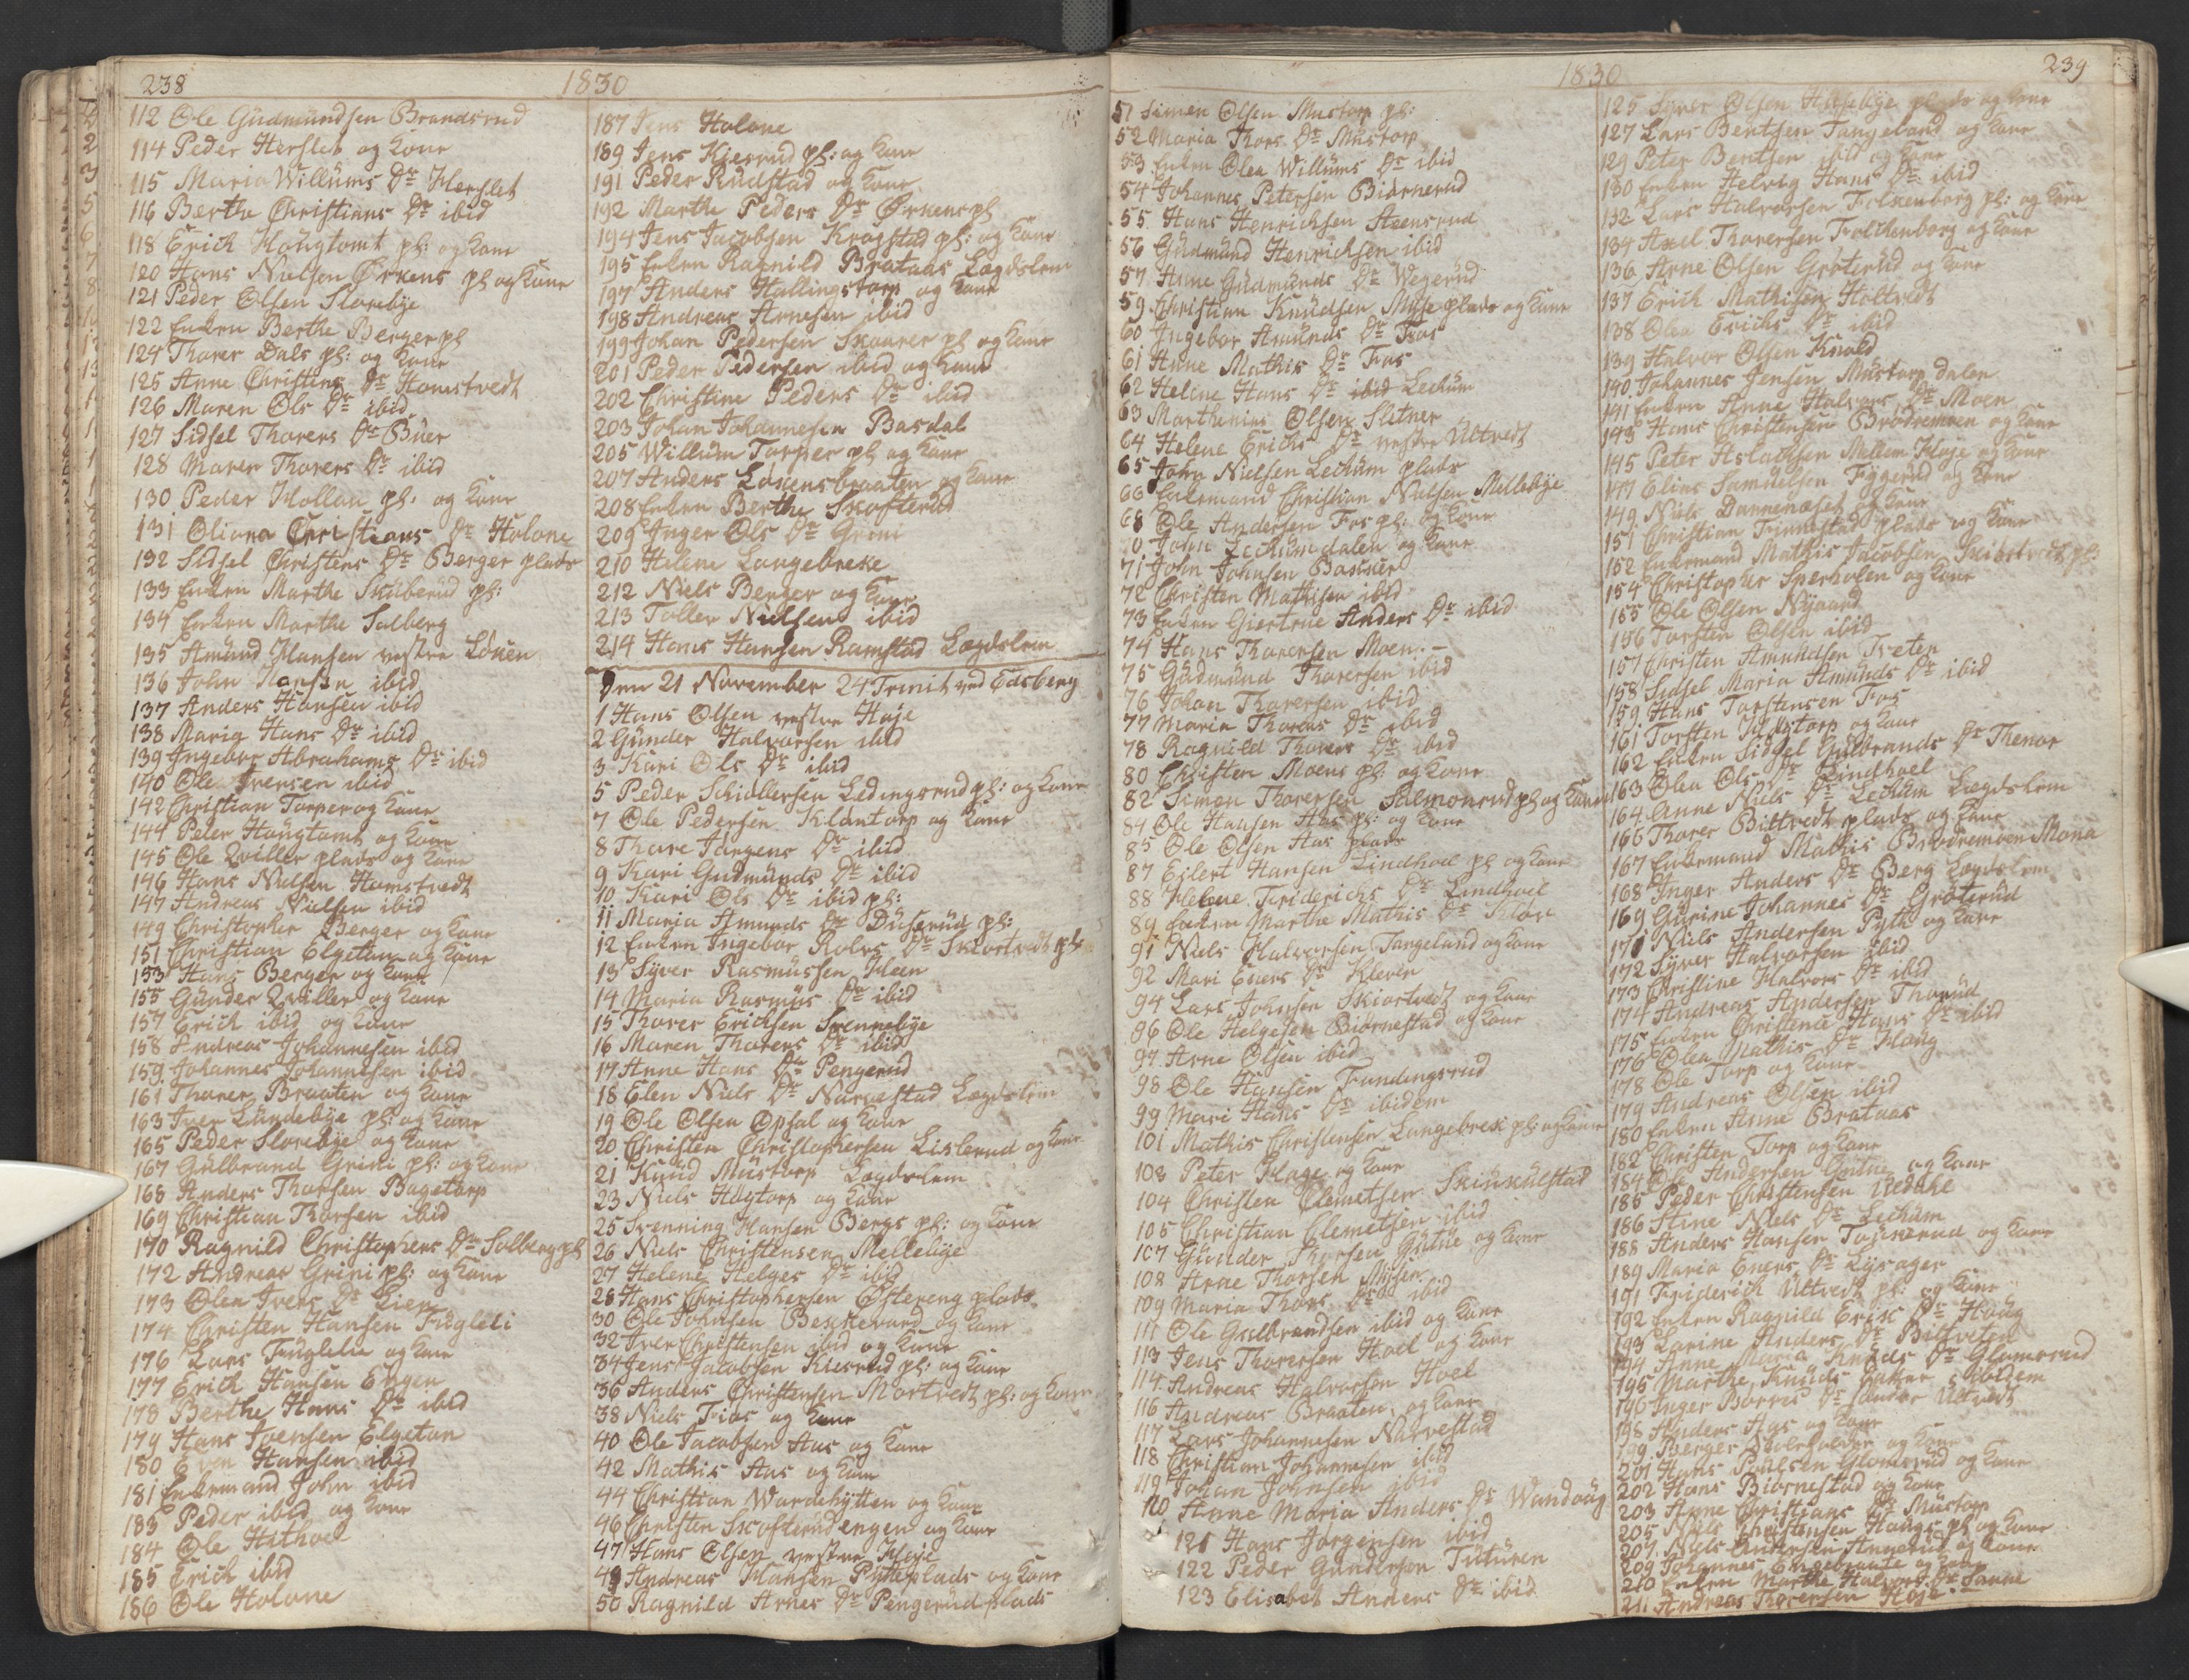 238
1830
112 Ole Gudmundsen Brandsrud
114 Peder Herslet og Kone
115 Maria Willums Dr Herslet
116 Berthe Christians Dr ibid
118 Erich Haugtomt pl: og Kone
120 Hans Nielsen Ørkens pl og Kone
121 Peder Olsen Slorebye
122 Enken Berthe Berger pl
124 Thorer Dals pl: og Kone
125 Anne Christens Dr Homstvedt
126 Maren Ols Dr ibid
127 Sidsel Thorers Dr Buer
128 Maren Thorers Dr ibid
130 Peder Mollau pl: og Kone
131 Oliana Christians Dr Holone
132 Sidsel Christens Dr Berger plads
133 Enken Marthe Skuberud pl:
134 Enken Marthe Solberg
135 Amund Hansen vestre Løken
136 John Hansen ibid
137 Anders Hansen ibid
138 Maria Hans Dr ibid
139 Ingebor Abrahams Dr ibid
140 Ole Iversen ibid
142 Christian Torper og Kone
144 Peter Haugtomt og Kone
145 Ole Qviller plads og Kone
146 Hans Nielsen Homstvedt
147 Andreas Nielsen ibid
149 Christopher Berger og Kone
151 Christian Elgetun og Kone
153 Hans Berger og Kone
155 Gunder Qviller og Kone
157 Erich ibid og Kone
158 Andreas Johannesen ibid
159 Johannes Johannesen ibid
161 Thorer Braaten og Kone
163 Iver Lundebye pl: og Kone
165 Peder Slorebye og Kone
167 Gulbrand Grini pl: og Kone
168 Anders Thorsen Bagetorp
169 Christian Thorsen ibid
170 Ragnild Christophers Dr Solberg pl
172 Andreas Grini pl: og Kone
173 Olea Ivers Dr Lien
174 Christen Hansen Fugleli
176 Lars Fuglelie og Kone
177 Erich Hansen Engen
178 Berthe Hans Dr ibid
179 Hans Joensen Elgetun
180 Even Hansen ibid
181 Enkemand John ibid
183 Peder ibid og Kone
184 Ole Hithoel
185 Erich ibid
186 Ole Holone
187 Jens Holone
189 Jens Kierrud pl: og Kone
191 Peder Rudstad og Kone
192 Marthe Peders Dr Ørkens pl
194 Jens Jacobsen Krogstad pl: og Kone
195 Enken Ragnild Brataas Lægdslem
197 Anders Hallingstorp og Kone
198 Andreas Arnesen ibid
199 Johan Pedersen Skaarer pl og Kone
201 Peder Pedersen ibid og Kone
202 Christine Peders Dr ibid
203 Johan Johannesen Basdal
205 Willum Torper pl og Kone
207 Anders Løkensbraaten og Kone
208 Enken Berthe Skofterud
209 Inger Ols Dr Grini
210 Helene Langebreke
212 Niels Berger og Kone
213 Toller Nielsen ibid
214 Hans Hansen Ramstad Lægdslem
Den 21 November 24 Trinit ved Edsberg
1 Hans Olsen vestre Haje
2 Gunder Halvorsen ibid
3 Kari Ols Dr ibid
5 Peder Schiøllersen Ledingsrud pl: og Kone
7 Ole Pedersen Klontorp og Kone
8 Thore Jørgens Dr ibid
9 Kari Gudmunds Dr ibid
10 Kari Ols Dr ibid pl:
11 Maria Amunds Dr Duserud pl:
12 Enken Ingebor Rolvs Dr Skiortvedt pl
13 Syver Rasmussen Kleen
14 Maria Rasmus Dr ibid
15 Thorer Erichsen Svennebye
16 Maren Thorers Dr ibid
17 Anne Hans Dr Pengerud
18 Elen Niels Dr Narvestad Lægdslem
19 Ole Olsen Opsal og Kone
20 Christen Christophersen Lislerud og Kone
21 Knud Mustorp Lægdslem
23 Niels Høytorp og Kone
25 Svenning Hansen Bergs pl: og Kone
26 Niels Christensen Mellebye
27 Helene Helges Dr ibid
28 Hans Christophersen Østereng plads
30 Ole Johnsen Bekkevard og Kone
32 Iver Christensen ibid og Kone
34 Jens Jacobsen Kierrud pl: og Kone
36 Anders Christensen Mortvedt pl: og Kone
38 Niels Fios og Kone
40 Ole Jacobsen Aas og Kone
42 Mathis Aas og Kone
44 Christian Wardehytten og Kone
46 Christen Skofterudengen og Kone
47 Hans Olsen vestre Haje
49 Andreas Hansen Pytteplads og Kone
50 Ragnild Arnes Dr Pengerud plads
1830
239
51 Simen Olsen Mustorp pl:
52 Maria Thors Dr Mustorp
53 Enken Olea Willums Dr ibid
54 Johannes Petersen Biørnerud
55 Hans Henrichsen Steensrud
56 Gudmund Henrichsen ibid
57 Anne Gudmunds Dr Wegerud
59 Christian Knudsen Myse plads og Kone
60 Ingebor Amunds Dr Fos
61 Anne Mathis Dr Fos
62 Helene Hans Dr ibid Lekum
63 Marthinius Olsen Slitner
64 Helene Erichs Dr vestre Ultvedt
65 John Nielsen Lekum plads
66 Enkemand Christian Nielsen Mellebye
68 Ole Andersen Fos pl: og Kone
70 John Lekumdalen og Kone
71 John Johnsen Bakker
72 Christen Mathisen ibid
73 Enken Giertrue Anders Dr ibid
74 Hans Thorersen Moen
75 Gudmund Thorersen ibid
76 Johan Thorersen ibid
77 Maria Thorers Dr ibid
78 Ragnild Thorers Dr ibid
80 Christen Moens pl: og Kone
82 Simon Thorersen Salmonrud pl og Kone
84 Ole Hansen Aas pl: og Kone
85 Ole Olsen Aas plads
87 Eilert Hansen Lindhoel pl og Kone
88 Helene Friderichs Dr Lindhoel
89 Enken Marthe Mathis Dr Kløv
91 Niels Halvorsen Tangeland og Kone
92 Mari Eners Dr Kleven
94 Lars Johnsen Skiortvedt og Kone
96 Ole Helgesen Biørnestad og Kone
97 Arne Olsen ibid
98 Ole Hansen Fundingsrud
99 Mari Hans Dr ibidem
101 Mathis Christensen Langebrek pl: og Kone
103 Peter Hage og Kone
104 Christen Clemetsen Skinkulstad
105 Christian Clemetsen ibid
107 Gunder Thorsen Gutue og Kone
108 Arne Thorsen Mysen
109 Maria Thors Dr ibid
111 Ole Gulbrandsen ibid og Kone
113 Jens Thorersen Hoel og Kone
114 Andreas Halvorsen Hoel
116 Andreas Braaten og Kone
117 Lars Johannesen Narvestad
118 Christian Johannesen ibid
119 Johan Johnsen ibid
120 Anne Maria Anders Dr Wandaug
121 Hans Jørgensen ibid
122 Peder Gunderson Tuturen
123 Elisabet Anders Dr ibid
125 Syver Olsen Haslebye plads og Kone
127 Lars Bentsen Tangeland og Kone
129 Peter Bentsen ibid og Kone
130 Enken Helvig Hans Dr ibid
132 Lars Halvorsen Folkenborg pl: og Kone
134 Axel Thorersen Folkenborg og Kone
136 Arne Olsen Grøterud og Kone
137 Erich Mathisen Holtvedt
138 Olea Erichs Dr ibid
139 Halvor Olsen Knold
140 Johannes Jensen Mustorpdalen
141 Enken Anne Halvors Dr Moen
143 Hans Christensen Brødremoen og Kone
145 Peter Aslachsen Mellem Haje og Kone
147 Elias Samuelsen Fyggerud og Kone
149 Niels Dannenaset og Kone
151 Christian Finnestad plads og Kone
152 Enkemand Mathis Jacobsen pl:
154 Christopher Sperholen og Kone
155 Ole Olsen Nygaard
156 Torsten Olsen ibid
157 Christen Amundsen Treten
158 Sidsel Maria Amunds Dr ibid
159 Hans Torstensen Fos
161 Torsten Høytorp og Kone
162 Enken Sidsel Gulbrands Dr Thenor
163 Olea Ols Dr Lindhoel
164 Anne Niels Dr Lekum Lægdslem
166 Thorer Bittvedt plads og Kone
167 Enkemand Mathis Brødremoen Mona
168 Inger Anders Dr Berg Lægdslem
169 Gurine Johannes Dr Grøterud
171 Niels Andersen Pytt og Kone
172 Syver Halvorsen ibid
173 Christine Halvors Dr ibid
174 Andreas Andersen Thorud
175 Enken Christence Hans Dr ibid
176 Olea Mathis Dr Haug
178 Ole Torp og Kone
179 Andreas Olsen ibid
180 Enken Anne Brataas
182 Christen Torp og Kone
184 Ole Andersen Gutue og Kone
185 Peder Christensen Uedahl
186 Stine Niels Dr Lekum
188 Anders Hansen Toskerud og Kone
189 Maria Eners Dr Lysager
191 Friderich Ultvedt pl: og Kone
192 Enken Ragnild Erichs Dr Haug
193 Larine Anders Dr Bittveten
194 Anne Maria Knuds Dr Glomsrud
195 Marthe Knuds Datter ibidem
196 Inger Børres Dr Søndre Ultvedt
198 Anders Aas og Kone
199 Berger og Kone
201 Hans Poulsen Glomsrud og Kone
202 Hans Biørnestad og Kone
203 Anne Christians Dr Mustorp
205 Niels Christensen Haugs pl og Kone
207 Niels Andersen og Kone
209 Johannes Engebraate og Kone
210 Enken Marthe Halvors Dr Sanne
211 Andreas Thorersen Haje